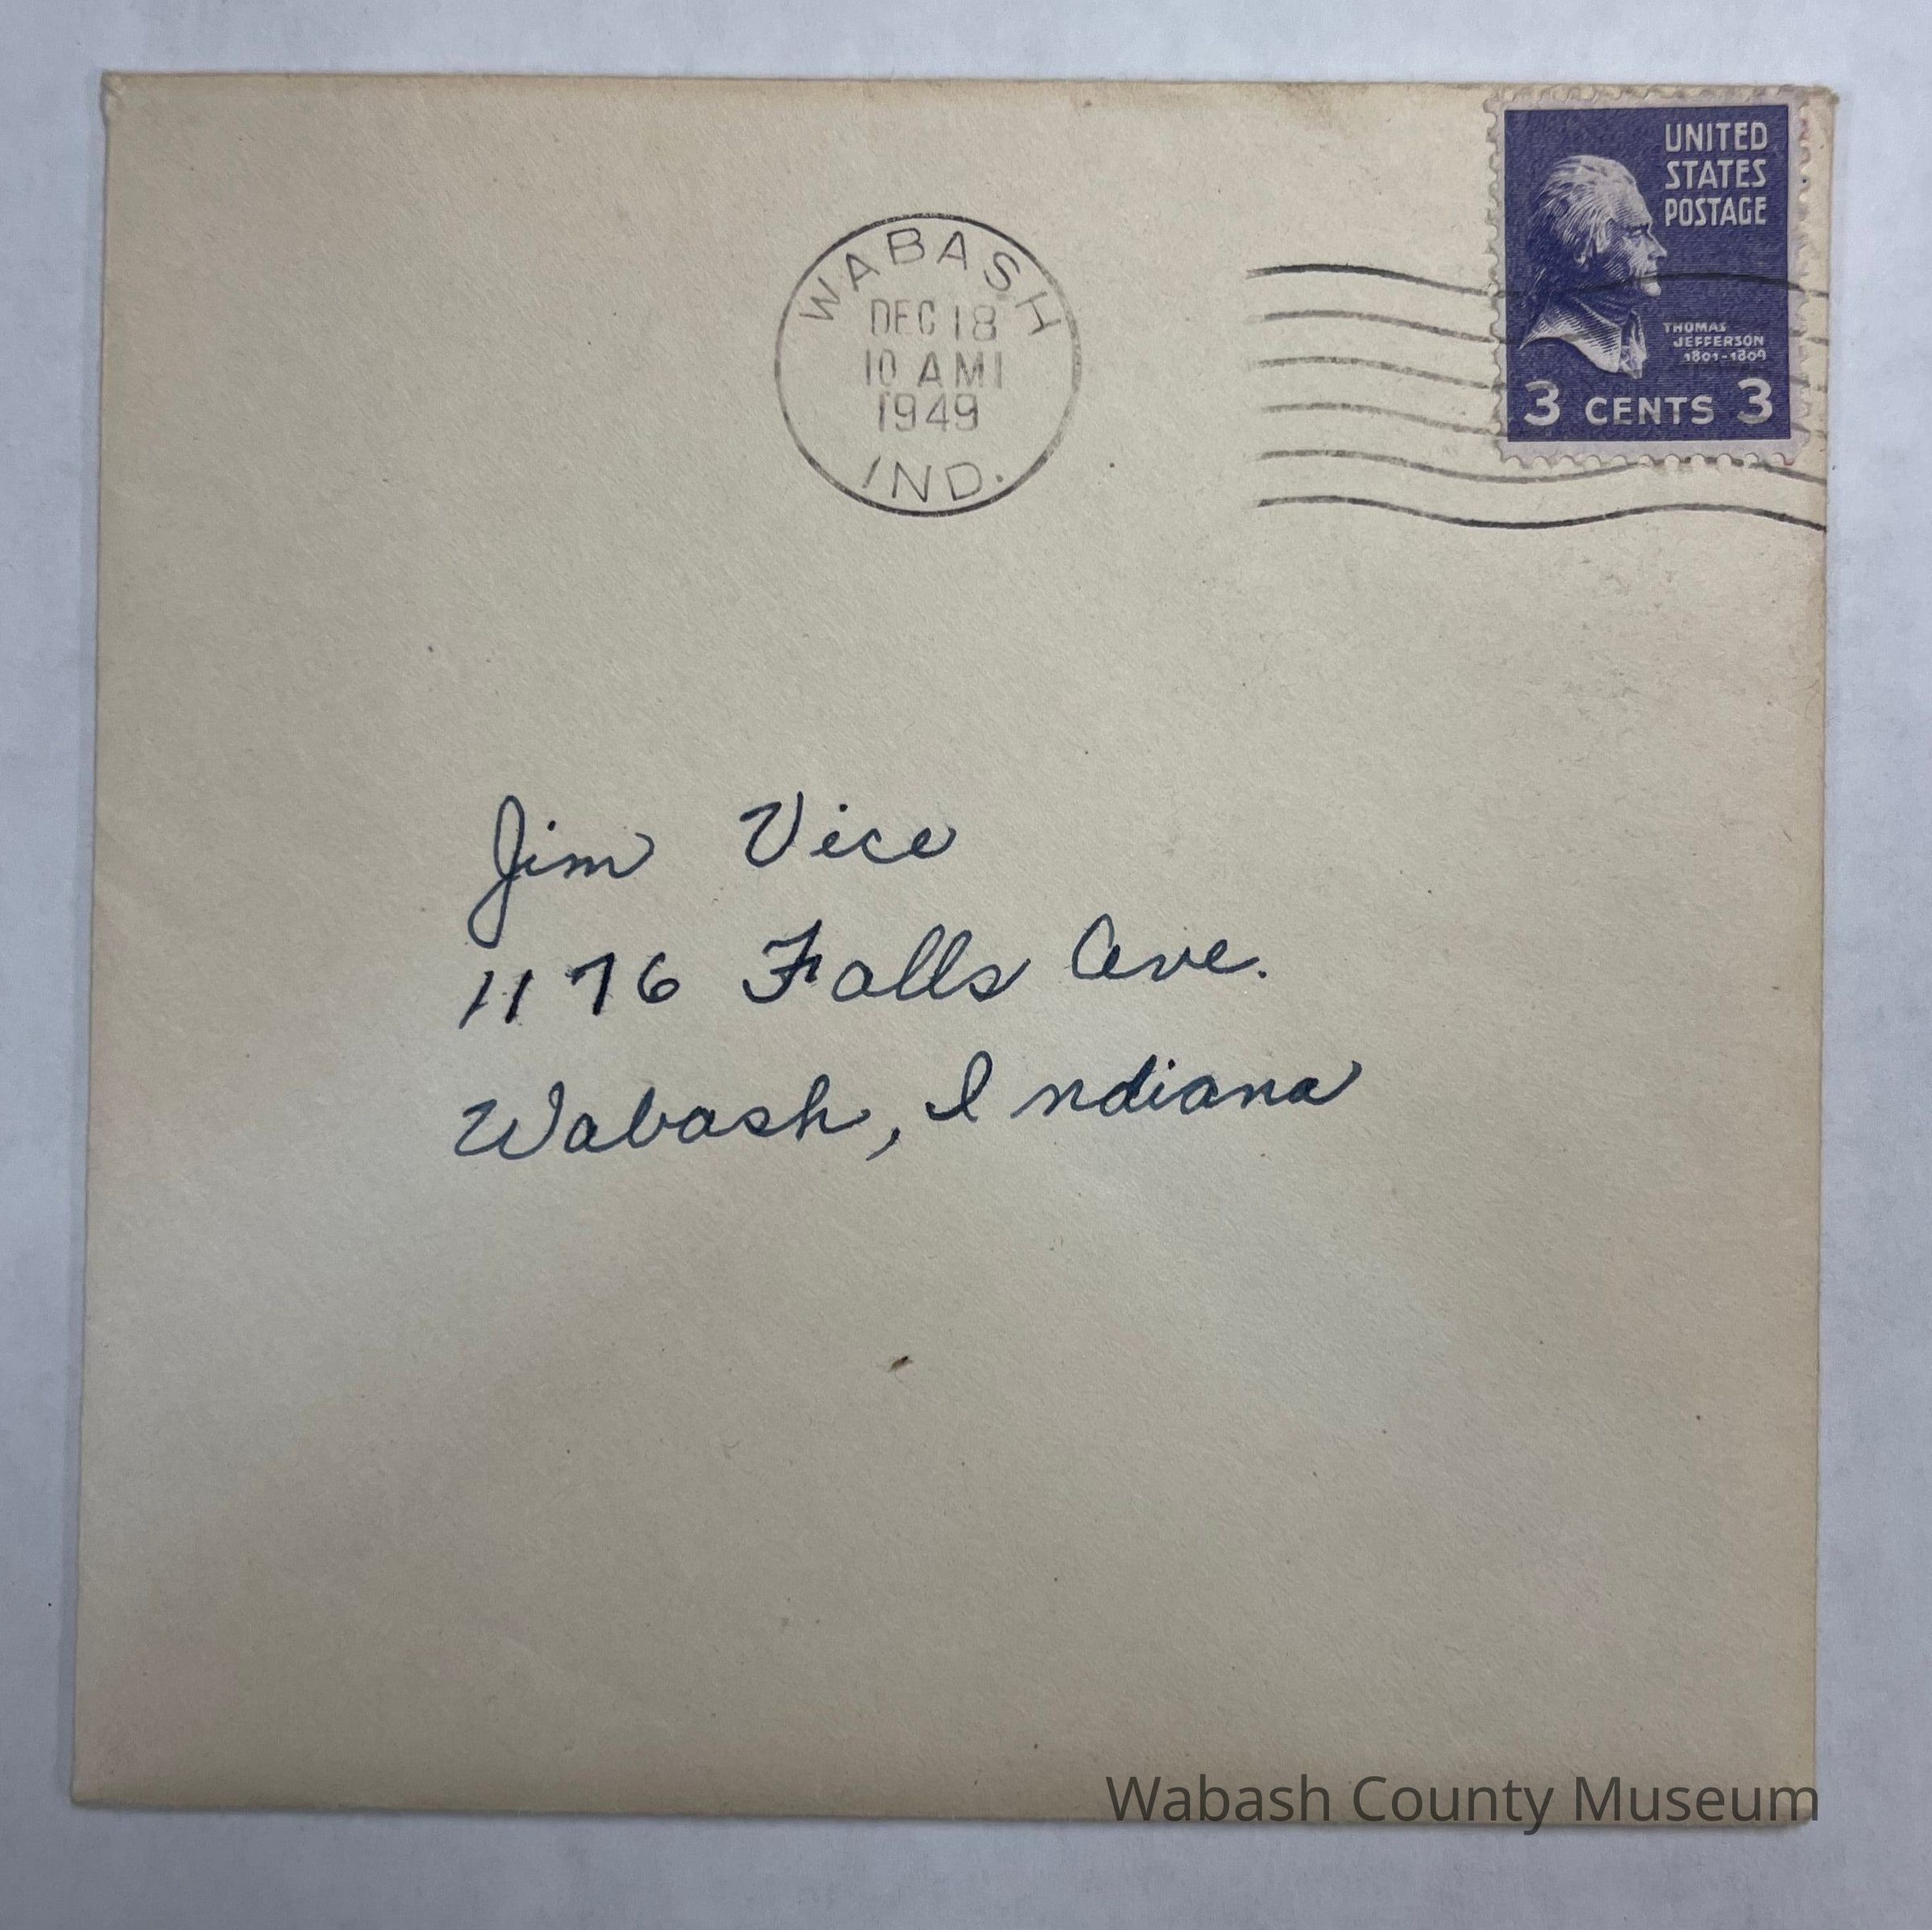 UNITED
STATES
POSTAGE
THOMAS
JEFFERSON
1801-1809
3 CENTS 3
WABASH
DEC 18
10 AM1
1949
IND.
Jim Vice
1176 Falls Ave.
Wabash, Indiana
Wabash County Museum